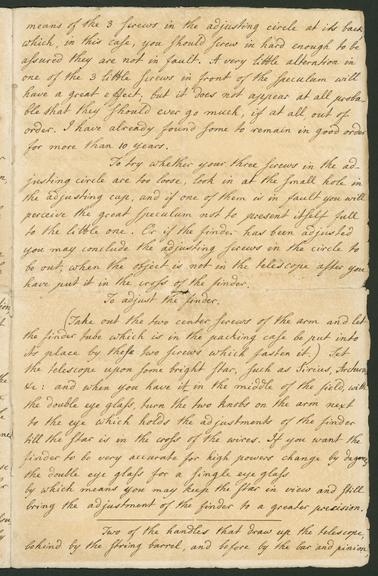 means of the 3 screws in the adjusting circle at its back
which, in this case, you should screw in hard enough to be
assured they are not in fault. A very little alteration in
one of the 3 little screws in front of the speculum will
have a great effect, but it does not appear at all proba-
ble that they should ever go much, if at all out of
order. I have already found some to remain in good order
for more than 10 years.
To try whether your three screws in the ad-
justing circle are too loose, look in at the small hole in
the adjusting cup, and if one of them is in fault you will
perceive the great speculum not to present itself full
to the little one. Or if the finder has been adjusted
you may conclude the adjusting screws in the circle to
be out, when the object is not in the telescope after you
have put it in the cross of the finder.
To adjust the finder.
(Take out the two center screws of the arm and let
the finder tube which is in the packing case be put into
its place by these two screws which fasten it.) Set
the telescope upon some bright star, such as Sirius, Arcturus
&c: and when you have it in the middle of the field, with
the double eye glass, turn the two knobs on the arm next
to the eye which holds the adjustments of the finder
till the star is in the cross of the wires. If you want the
finder to be very accurate for high powers change by degrees
the double eye glass for a single eye glass
by which means you may keep the star in view and still
bring the adjustment of the finder to a greater precision.
Two of the handles that draw up the telescope,
behind by the string barrel, and before by the bar and pinion,